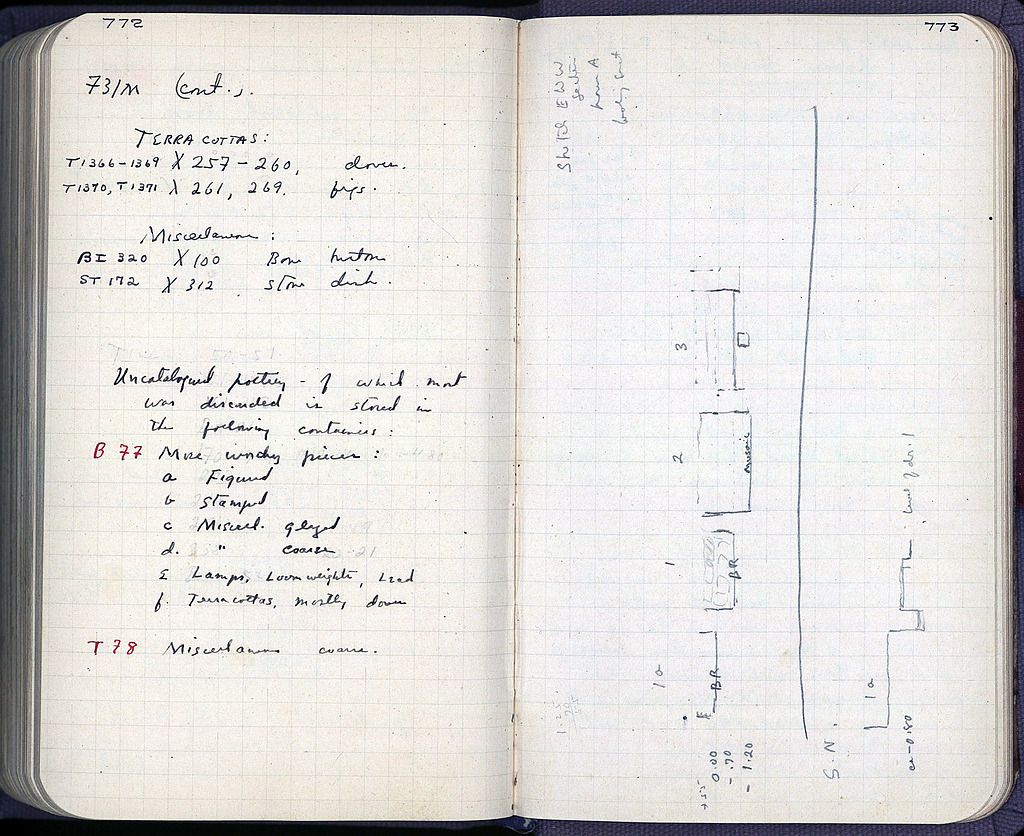 772
73/M (cont.).
TERRACOTTAS:
T1366-1369 X 257-260, doves.
T1370, T1371 X 261, 269. figs.
Miscellaneous:
BI 320 X 100 Bone button
ST 172 X 312 stone dish.
Uncatalogued pottery - of which most
was discarded is stored in
the following containers:
B 77 More worthy pieces:
a Figured
b Stamped
c Miscel. glazed
d. " coarse
E Lamps, Loomweights, Lead
f. Terracottas, mostly doves
T 78 Miscellaneous coarse.
773
Sketch E W W
section
from A
looking
3
2
mosaic
1
BR
1a
E
BR
+.55
0.00
-.70
-1.20
S.N.
1a
ca -0.80
level of dr. 1